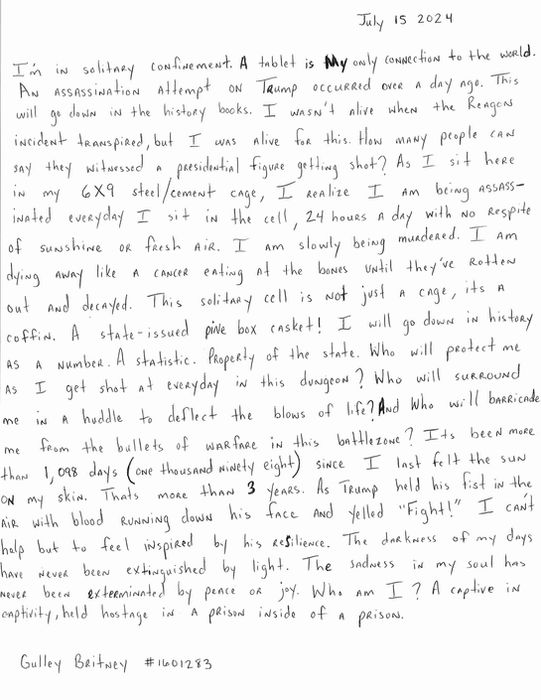 July 15 2024
I'm in solitary confinement. A tablet is My only connection to the world.
An assassination attempt on Trump occurred over a day ago. This
will go down in the history books. I wasn't alive when the Reagan
incident transpired, but I was alive for this. How many people can
say they witnessed a presidential figure getting shot? As I sit here
in my 6X9 steel/cement cage, I realize I am being assass-
inated everyday I sit in the cell, 24 hours a day with no respite
of sunshine or fresh air. I am slowly being murdered. I am
dying away like a cancer eating at the bones until they've rotten
out and decayed. This solitary cell is not just a cage, its a
coffin. A state-issued pine box casket! I will go down in history
as a number. A statistic. Property of the state. Who will protect me
as I get shot at everyday in this dungeon? Who will surround
me in a huddle to deflect the blows of life? And Who will barricade
me from the bullets of warfare in this battlezone? Its been more
than 1,098 days (one thousand ninety eight) since I last felt the sun
on my skin. Thats more than 3 years. As Trump held his fist in the
air with blood running down his face and yelled "Fight!" I can't
help but to feel inspired by his resilience. The darkness of my days
have never been extinguished by light. The sadness in my soul has
never been exterminated by peace or joy. Who am I? A captive in
captivity, held hostage in a prison inside of a prison.
Gulley Britney #1601283